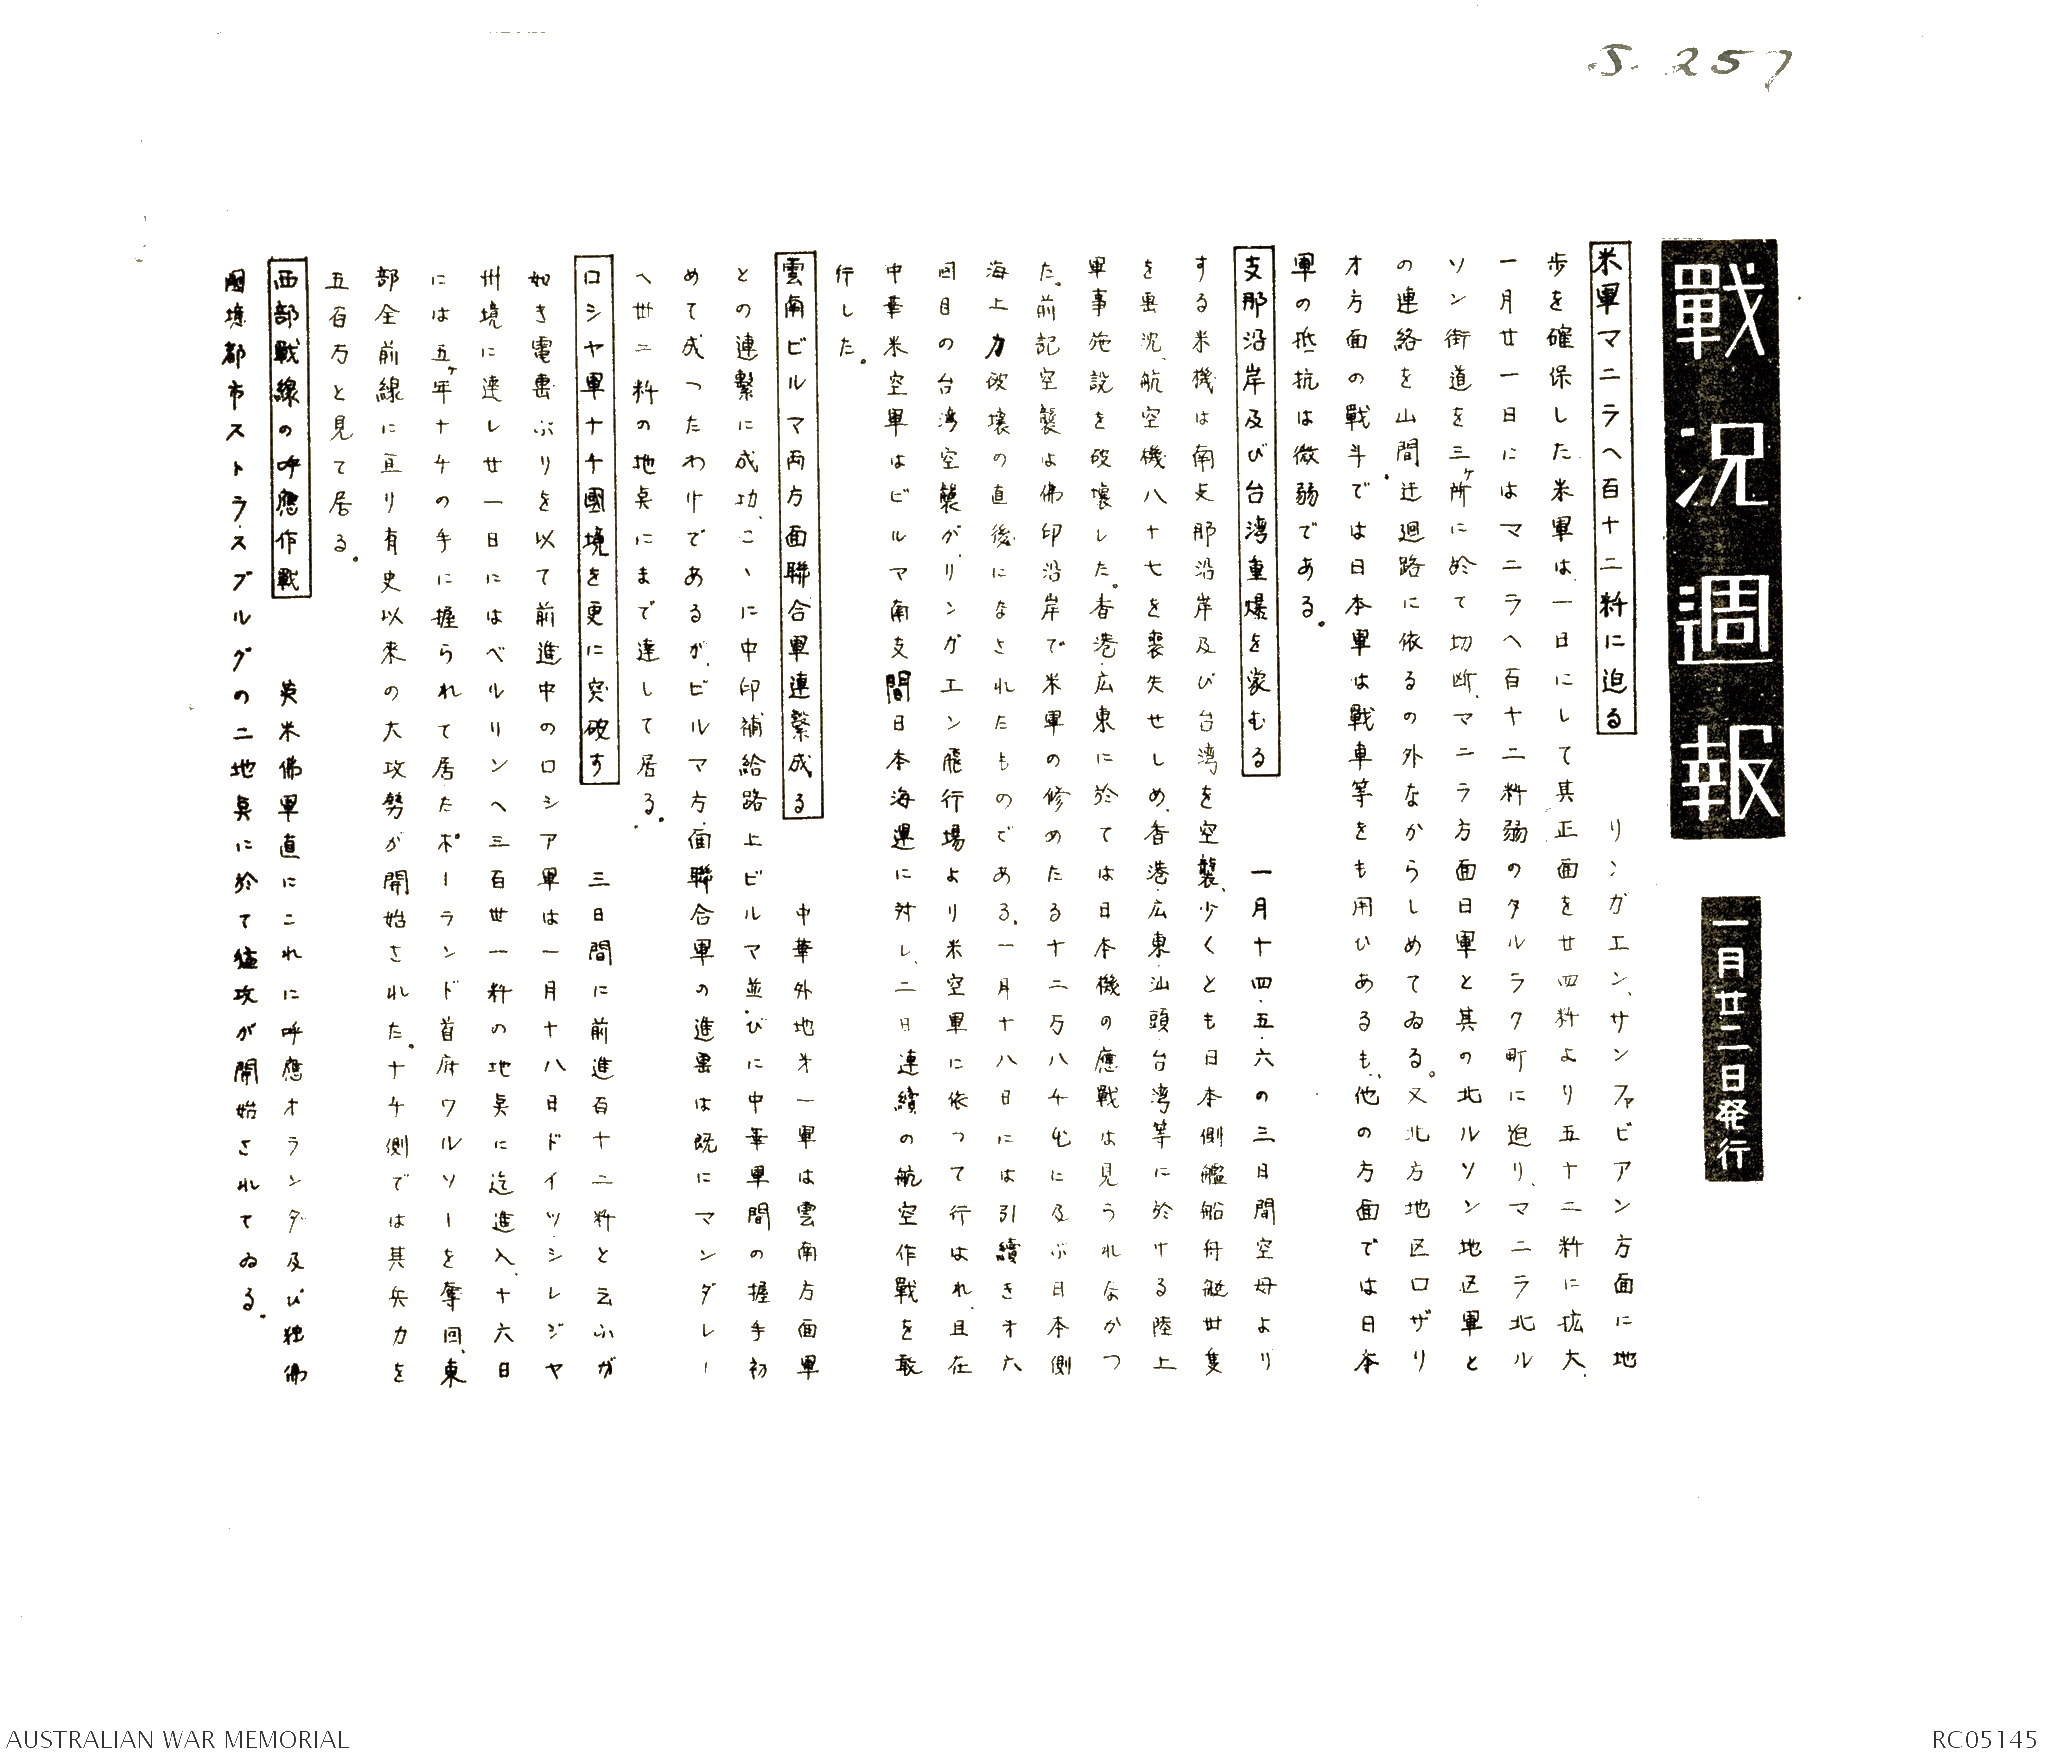 S. 257
戰況週報
一月廿二日発行
米軍マニラへ百十二粁に迫る　リンガエン、サンファビアン方面に地
歩を確保した米軍は、一日にして其正面を廿四粁より五十二粁に拡大、
一月廿一日にはマニラへ百十二粁弱のタルラク町に迫り、マニラ北ル
ソン街道を三ヶ所に於て切断、マニラ方面日軍と其の北ルソン地区軍と
の連絡を山間迂廻路に依るの外なからしめてゐる。又北方地区ロザリ
オ方面の戰斗では日本軍は戰車等をも用ひあるも、他の方面では日本
軍の抵抗は微弱である。
支那沿岸及び台湾重爆を蒙むる　一月十四・五・六の三日間空母より
する米機は南支那沿岸及び台湾を空襲、少くとも日本側艦船舟艇廿隻
を轟沈、航空機八十七を喪失せしめ、香港・広東・汕頭・台湾等に於ける陸上
軍事施設を破壊した。香港・広東に於ては日本機の應戰は見うれなかつ
た。前記空襲は佛印沿岸で米軍の修めたる十二万八千屯に及ぶ日本側
海上力破壊の直後になされたものである。一月十八日には引續きオ六
回目の台湾空襲が、リンガエン飛行場より米空軍に依つて行はれ、且在
中華米空軍はビルマ南支間日本海運に対し、二日連續の航空作戰を敢
行した。
雲南ビルマ両方面聯合軍連繋成る　中華外地オ一軍は雲南方面軍
との連繋に成功、こゝに中印補給路上ビルマ並びに中華軍間の握手初
めて成つたわけであるが、ビルマ方面聯合軍の進轟は既にマンダレー
へ世二粁の地点にまで達して居る。
ロシヤ軍ナチ國境を更に突破す　三日間に前進百十二粁と云ふが
如き電轟ぶりを以て前進中のロシア軍は一月十八日ドイツ・シレジヤ
州境に達し廿一日にはベルリンへ三百世一粁の地点に迄進入、十六日
には五ヶ年ナチの手に握られて居たポーランド首府ワルソーを奪回、東
部全前線に亘り有史以來の大攻勢が開始された。ナチ側では其兵力を
五百万と見て居る。
西部戰線の呼應作戰　英米佛軍直にこれに呼應オランダ及び独佛
國境都市ストラスブルグの二地点に於て猛攻が開始されてゐる。
AUSTRALIAN WAR MEMORIAL
RC05145